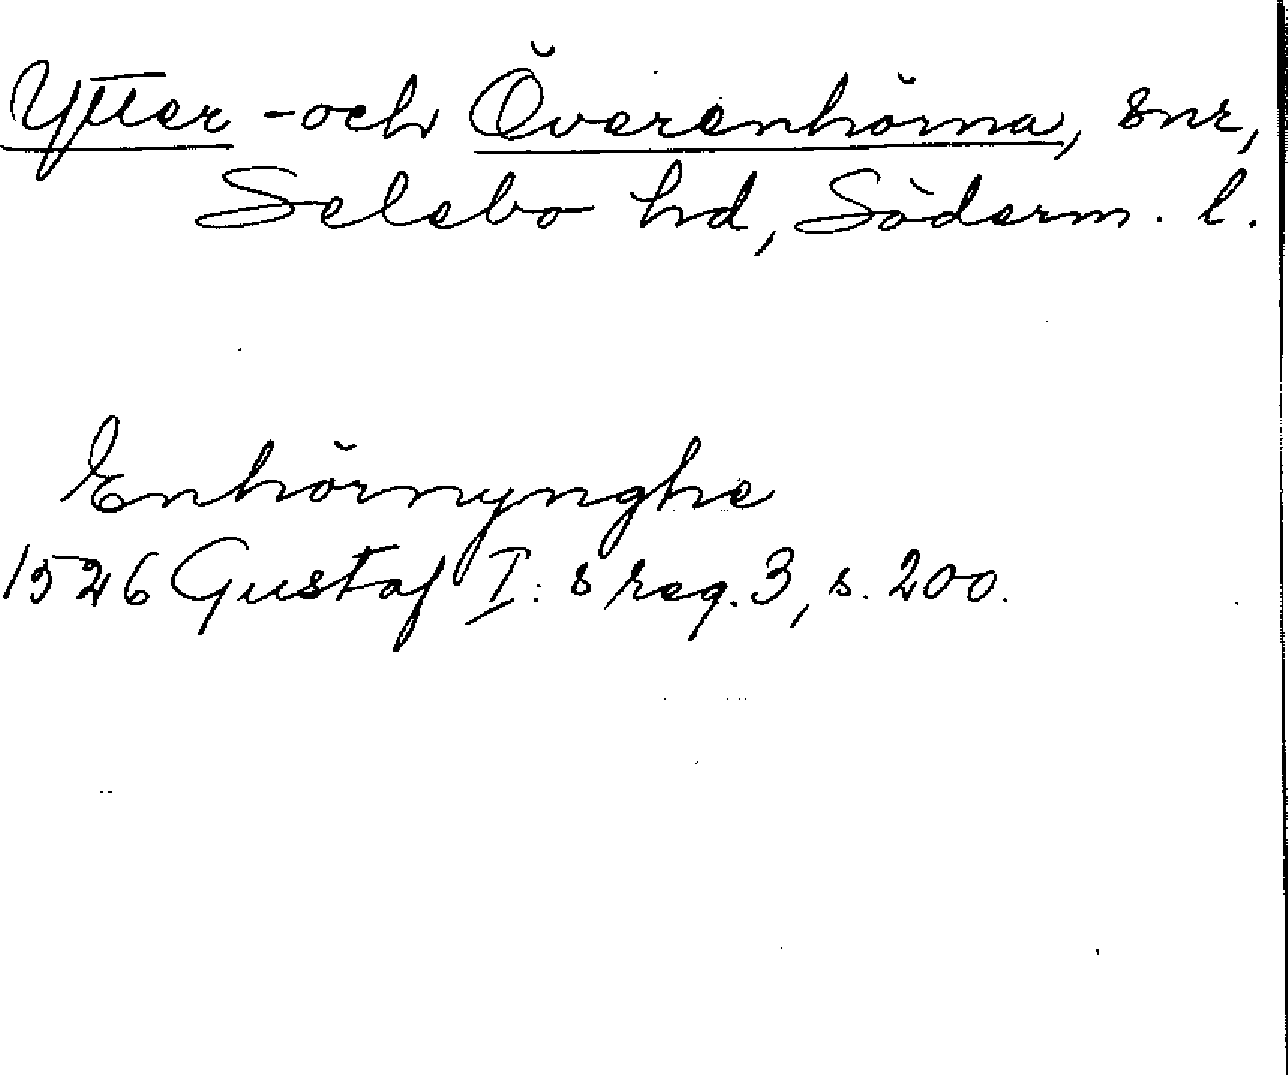 Ytter - och Överenhörna, snr,
Selebo hd, Söderm. l.
Enhörnynghe
1526 Gustaf I: s reg. 3, s. 200.